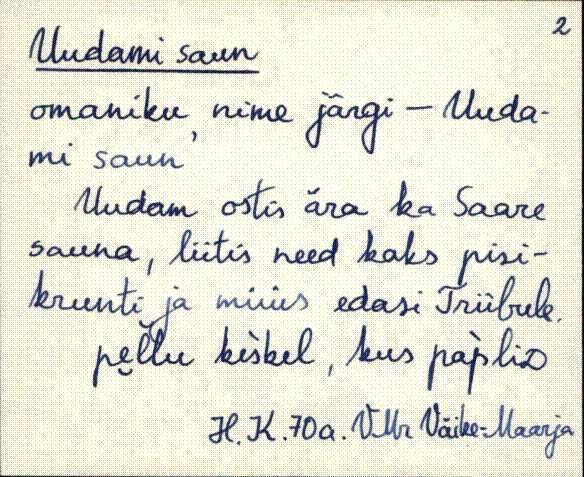 2
Uudami saun
omaniku nime järgi – Uuda-
mi saun'
Uudam ostis ära ka Saare
sauna, liitis need kaks pisi-
krunti ja müüs edasi Triibule.
kus
H. K. 70a. VMr Väike-Maarja